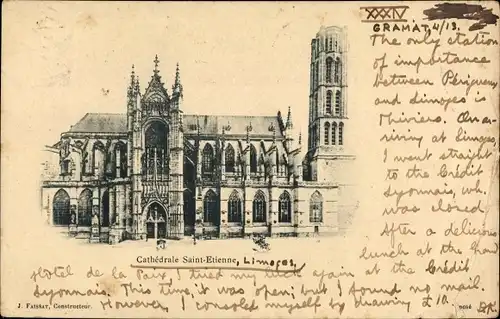 XXXIV
GRAMAT, 4/13.
The only station
of importance
between Périgueux
and Limoges is
Thiviers. On ar-
riving at Limoges,
I went straight
to the Crédit
Lyonnais, wh.
was closed.
After a delicious
lunch at the Grand
Cathédrale Saint-Etienne, Limoges,
Hôtel de la Paix, I tried my luck again at the Crédit
Lyonnais. This time, it was open, but I found no mail.
However, I consoled myself by drawing £10.
J. Faissat, Constructeur.